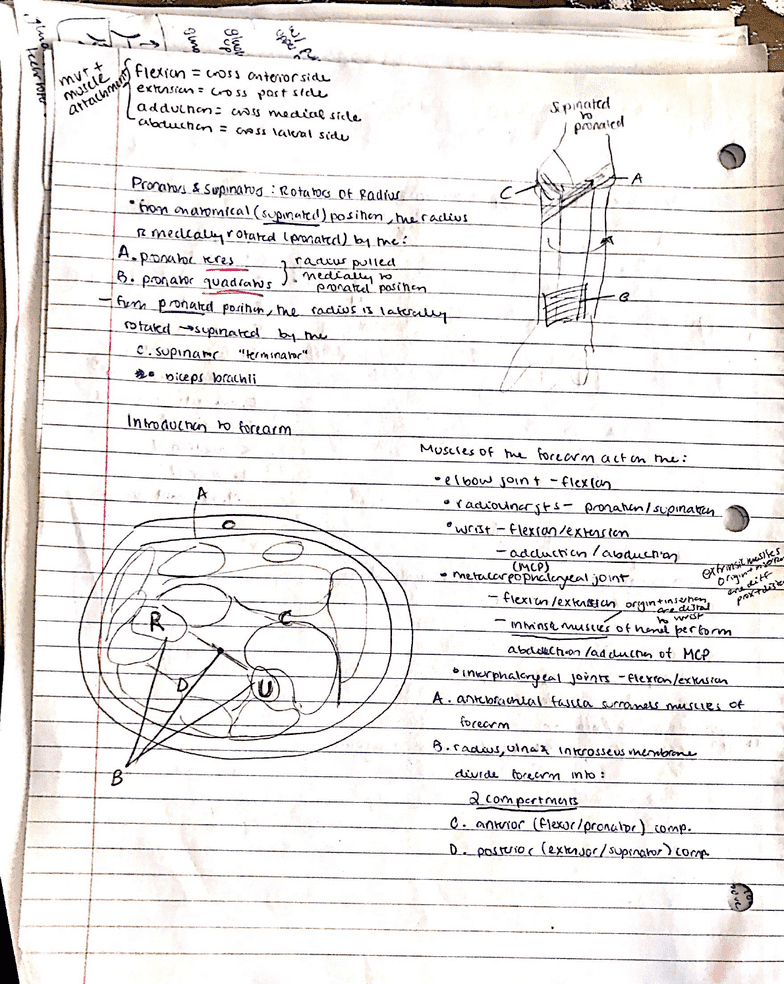 mvt +
muscle
attachment
flexion = cross anterior side
extension = cross post side
adduction = cross medial side
abduction = cross lateral side
Supinated
to
pronated
C
A
B
Pronators & Supinators : Rotators of Radius
• from anatomical (supinated) position, the radius
is medially rotated (pronated) by the :
A. pronator teres
B. pronator quadratus
radius pulled
medially to
pronated position
– from pronated position, the radius is laterally
rotated → supinated by the
C. supinator "terminator"
• biceps brachii
Introduction to forearm
A
R
C
D
U
B
Muscles of the forearm act on the :
• elbow joint – flexion
• radioulnar jts – pronation/supination
• wrist – flexion/extension
– adduction/abduction
(MCP)
• metacarpophalangeal joint
– flexion/extension
origin + insertion
are distal
to wrist
– intrinsic muscles of hand perform
abduction/adduction of MCP
extrinsic muscles
origin +
are diff
• interphalangeal joints – flexion/extension
A. antebrachial fascia surrounds muscles of
forearm
B. radius, ulna & interosseus membrane
divide forearm into :
2 compartments
C. anterior (flexor/pronator) comp.
D. posterior (extensor/supinator) comp.